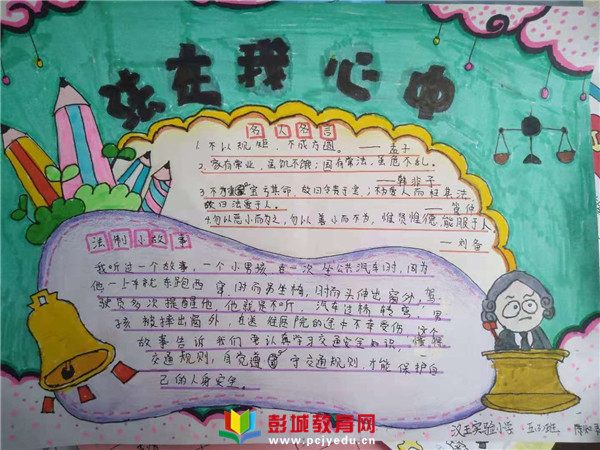 法在我心中
名人名言
1. 不以规矩，不成方圆。 ——孟子
2. 家有常业，虽饥不饿；国有常法，虽危不乱。
——韩非子
3. 不为君
欲变其令，令尊于君
故曰法爱于人。 ——管仲
4. 勿以恶小而为之，勿以善小而不为，惟贤惟德，能服于人。
——刘备
法制小故事
我听过一个故事，一个小男孩在一次坐公共汽车时，因为
他一上车就车跑西穿，时而另坐椅，时而头伸出窗外，驾
驶员多次提醒他，他就是不听，汽车过桥转弯，男
孩被摔出窗外，在送往医院的途中不幸受伤，这个
故事告诉我们，要认真学习交通安全知识，懂得
交通规则，自觉遵守交通规则，才能保护自
己的人身安全。
汉王实验小学 五(3)班
彭城教育网
www.pcjyedu.cn